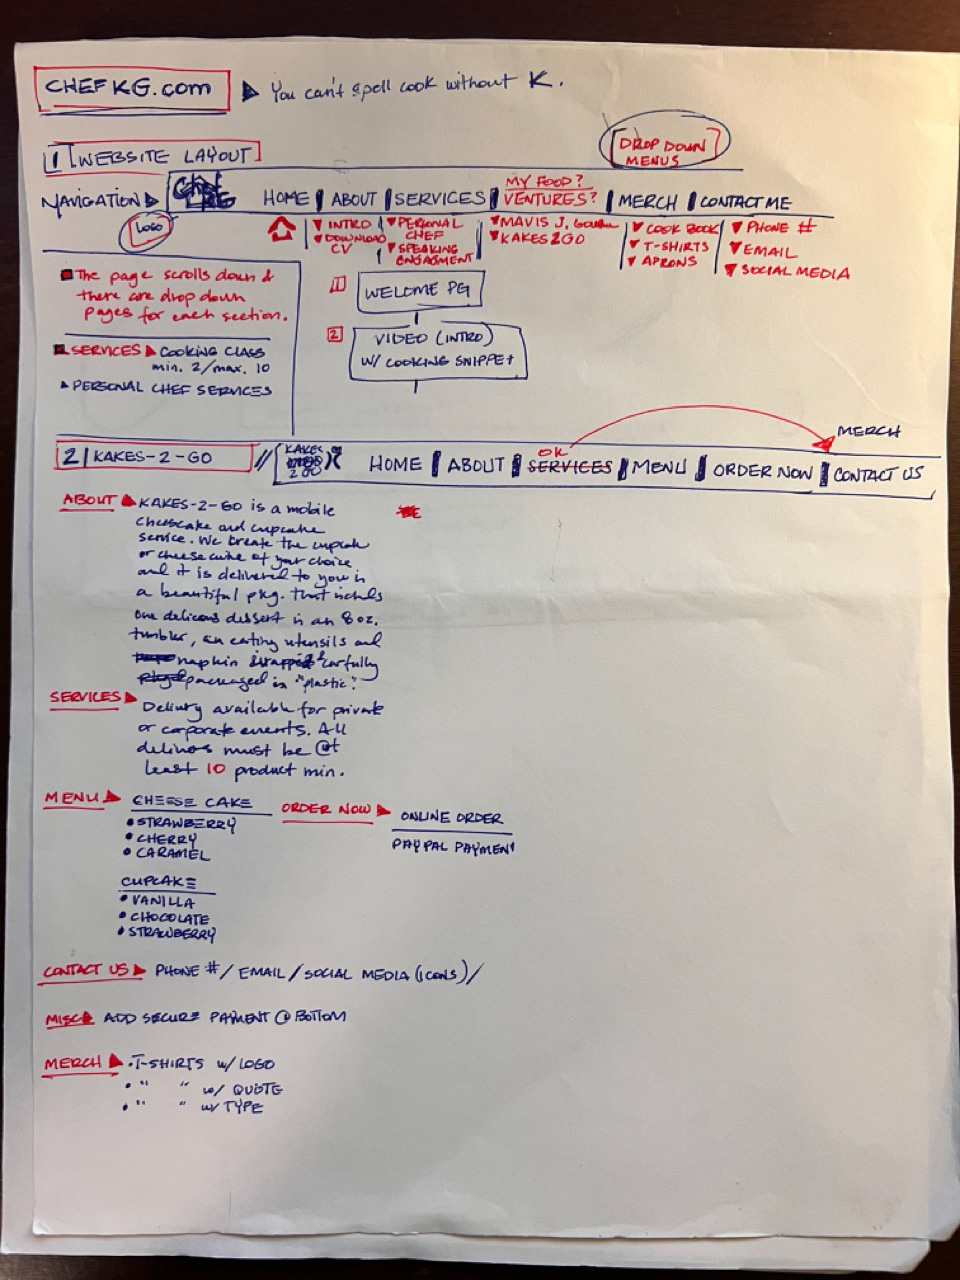 CHEFKG.com ▶ You can't spell cook without K.
1 WEBSITE LAYOUT
DROP DOWN
MENUS
NAVIGATION ▶ HOME | ABOUT | SERVICES | MY FOOD? VENTURES? | MERCH | CONTACT ME
LOGO
▼ INTRO
▼ DOWNLOAD
CV
▼ PERSONAL
CHEF
▼ SPEAKING
ENGAGMENT
▼ MAVIS J.
▼ KAKES2GO
▼ COOK BOOK
▼ T-SHIRTS
▼ APRONS
▼ PHONE #
▼ EMAIL
▼ SOCIAL MEDIA
■ The page scrolls down &
there are drop down
pages for each section.
■ SERVICES ▶ COOKING CLASS
min. 2/max. 10
▲ PERSONAL CHEF SERVICES
1 WELCOME PG
2 VIDEO (INTRO)
W/ COOKING SNIPPET
MERCH
2| KAKES-2-GO // KAKES
2 GO
HOME | ABOUT | SERVICES | MENU | ORDER NOW | CONTACT US
OK
ABOUT ▶ KAKES-2-GO is a mobile
cheesecake and cupcake
service. We create the cupcake
or cheesecake of your choice
and it is delivered to you in
a beautiful pkg. that
one delicious dessert in an 8 oz.
tumbler, an eating utensils and
napkin wrapped & carfully
packaged in "plastic".
SERVICES ▶ Delivery available for private
or corporate events. All
must be @t
least 10 product min.
MENU ▶ CHEESE CAKE
• STRAWBERRY
• CHERRY
• CARAMEL
CUPCAKE
• VANILLA
• CHOCOLATE
• STRAWBERRY
ORDER NOW ▶ ONLINE ORDER
PAYPAL PAYMENT
CONTACT US ▶ PHONE #/ EMAIL / SOCIAL MEDIA (ICONS)/
MISC ▶ ADD SECURE PAYMENT @ BOTTOM
MERCH ▶ • T-SHIRTS w/ LOGO
• " " w/ QUOTE
• " " w/ TYPE